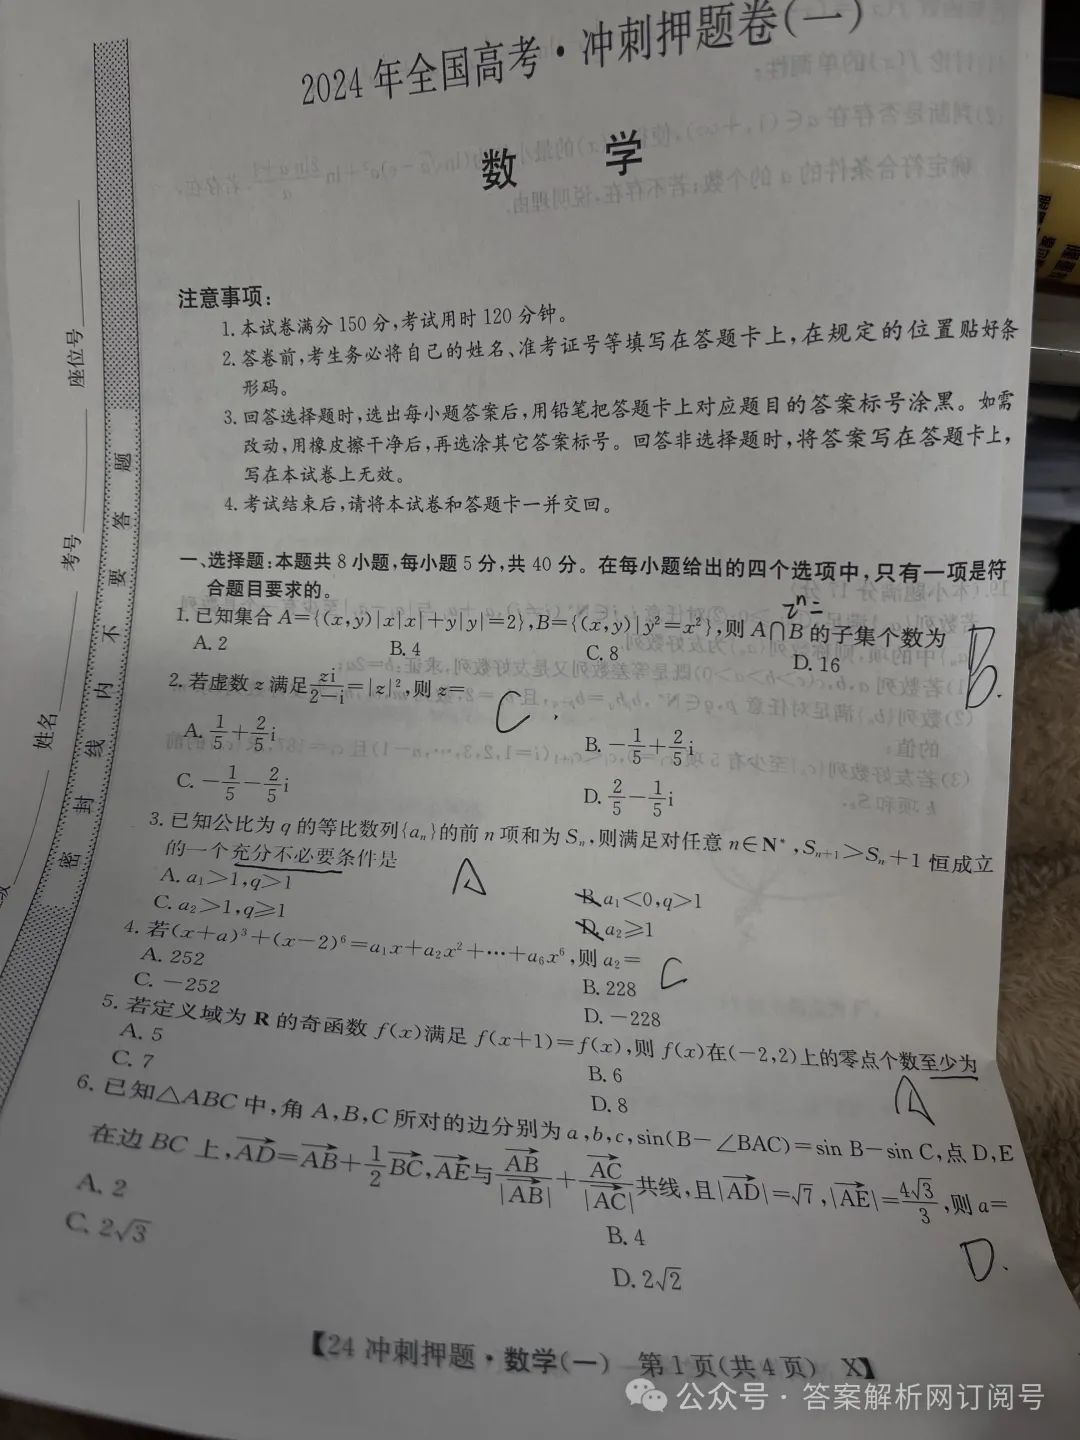 2024年全国高考·冲刺押题卷(一)
数 学
注意事项:
1.本试卷满分150分,考试用时120分钟。
2.答卷前,考生务必将自己的姓名、准考证号等填写在答题卡上,在规定的位置贴好条
形码。
3.回答选择题时,选出每小题答案后,用铅笔把答题卡上对应题目的答案标号涂黑。如需
改动,用橡皮擦干净后,再选涂其它答案标号。回答非选择题时,将答案写在答题卡上,
写在本试卷上无效。
4.考试结束后,请将本试卷和答题卡一并交回。
一、选择题:本题共8小题,每小题5分,共40分。在每小题给出的四个选项中,只有一项是符
合题目要求的。
2ⁿ=
1.已知集合A={(x,y)|x|x|+y|y|=2},B={(x,y)|y²=x²},则A∩B的子集个数为
B.
A.2 B.4 C.8 D.16
2.若虚数z满足zi/(2-i)=|z|²,则z=
C.
A.1/5+2/5i B.-1/5+2/5i
C.-1/5-2/5i D.2/5-1/5i
3.已知公比为q的等比数列{aₙ}的前n项和为Sₙ,则满足对任意n∈N*,Sₙ₊₁>Sₙ+1恒成立
的一个充分不必要条件是
A
A.a₁>1,q>1 B.a₁<0,q>1
C.a₂>1,q≥1 D.a₂≥1
4.若(x+a)³+(x-2)⁶=a₁x+a₂x²+…+a₆x⁶,则a₂=
C
A.252 B.228
C.-252 D.-228
5.若定义域为R的奇函数f(x)满足f(x+1)=f(x),则f(x)在(-2,2)上的零点个数至少为
A
A.5 B.6
C.7 D.8
6.已知△ABC中,角A,B,C所对的边分别为a,b,c,sin(B-∠BAC)=sin B-sin C,点D,E
在边BC上,AD=AB+1/2BC,AE与AB/|AB|+AC/|AC|共线,且|AD|=√7,|AE|=4√3/3,则a=
D.
A.2 B.4
C.2√3 D.2√2
【24冲刺押题·数学(一) 第1页(共4页) X】
座位号
考号
姓名
密封线内不要答题
公众号·答案解析网订阅号